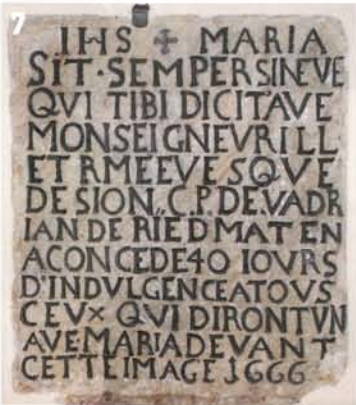 7
IHS ✠ MARIA
SIT·SEMPER SINE VE
QVI TIBI DICIT AVE
MONSEIGNEVR ILL
ET RME EVESQVE
DE SION, C.P. DE VADR
IAN DE RIEDMATEN
A CONCEDE 40 IOVRS
D'INDVLGENCE A TOVS
CEVX QVI DIRONT VN
AVE MARIA DEVANT
CETTE IMAGE 1666